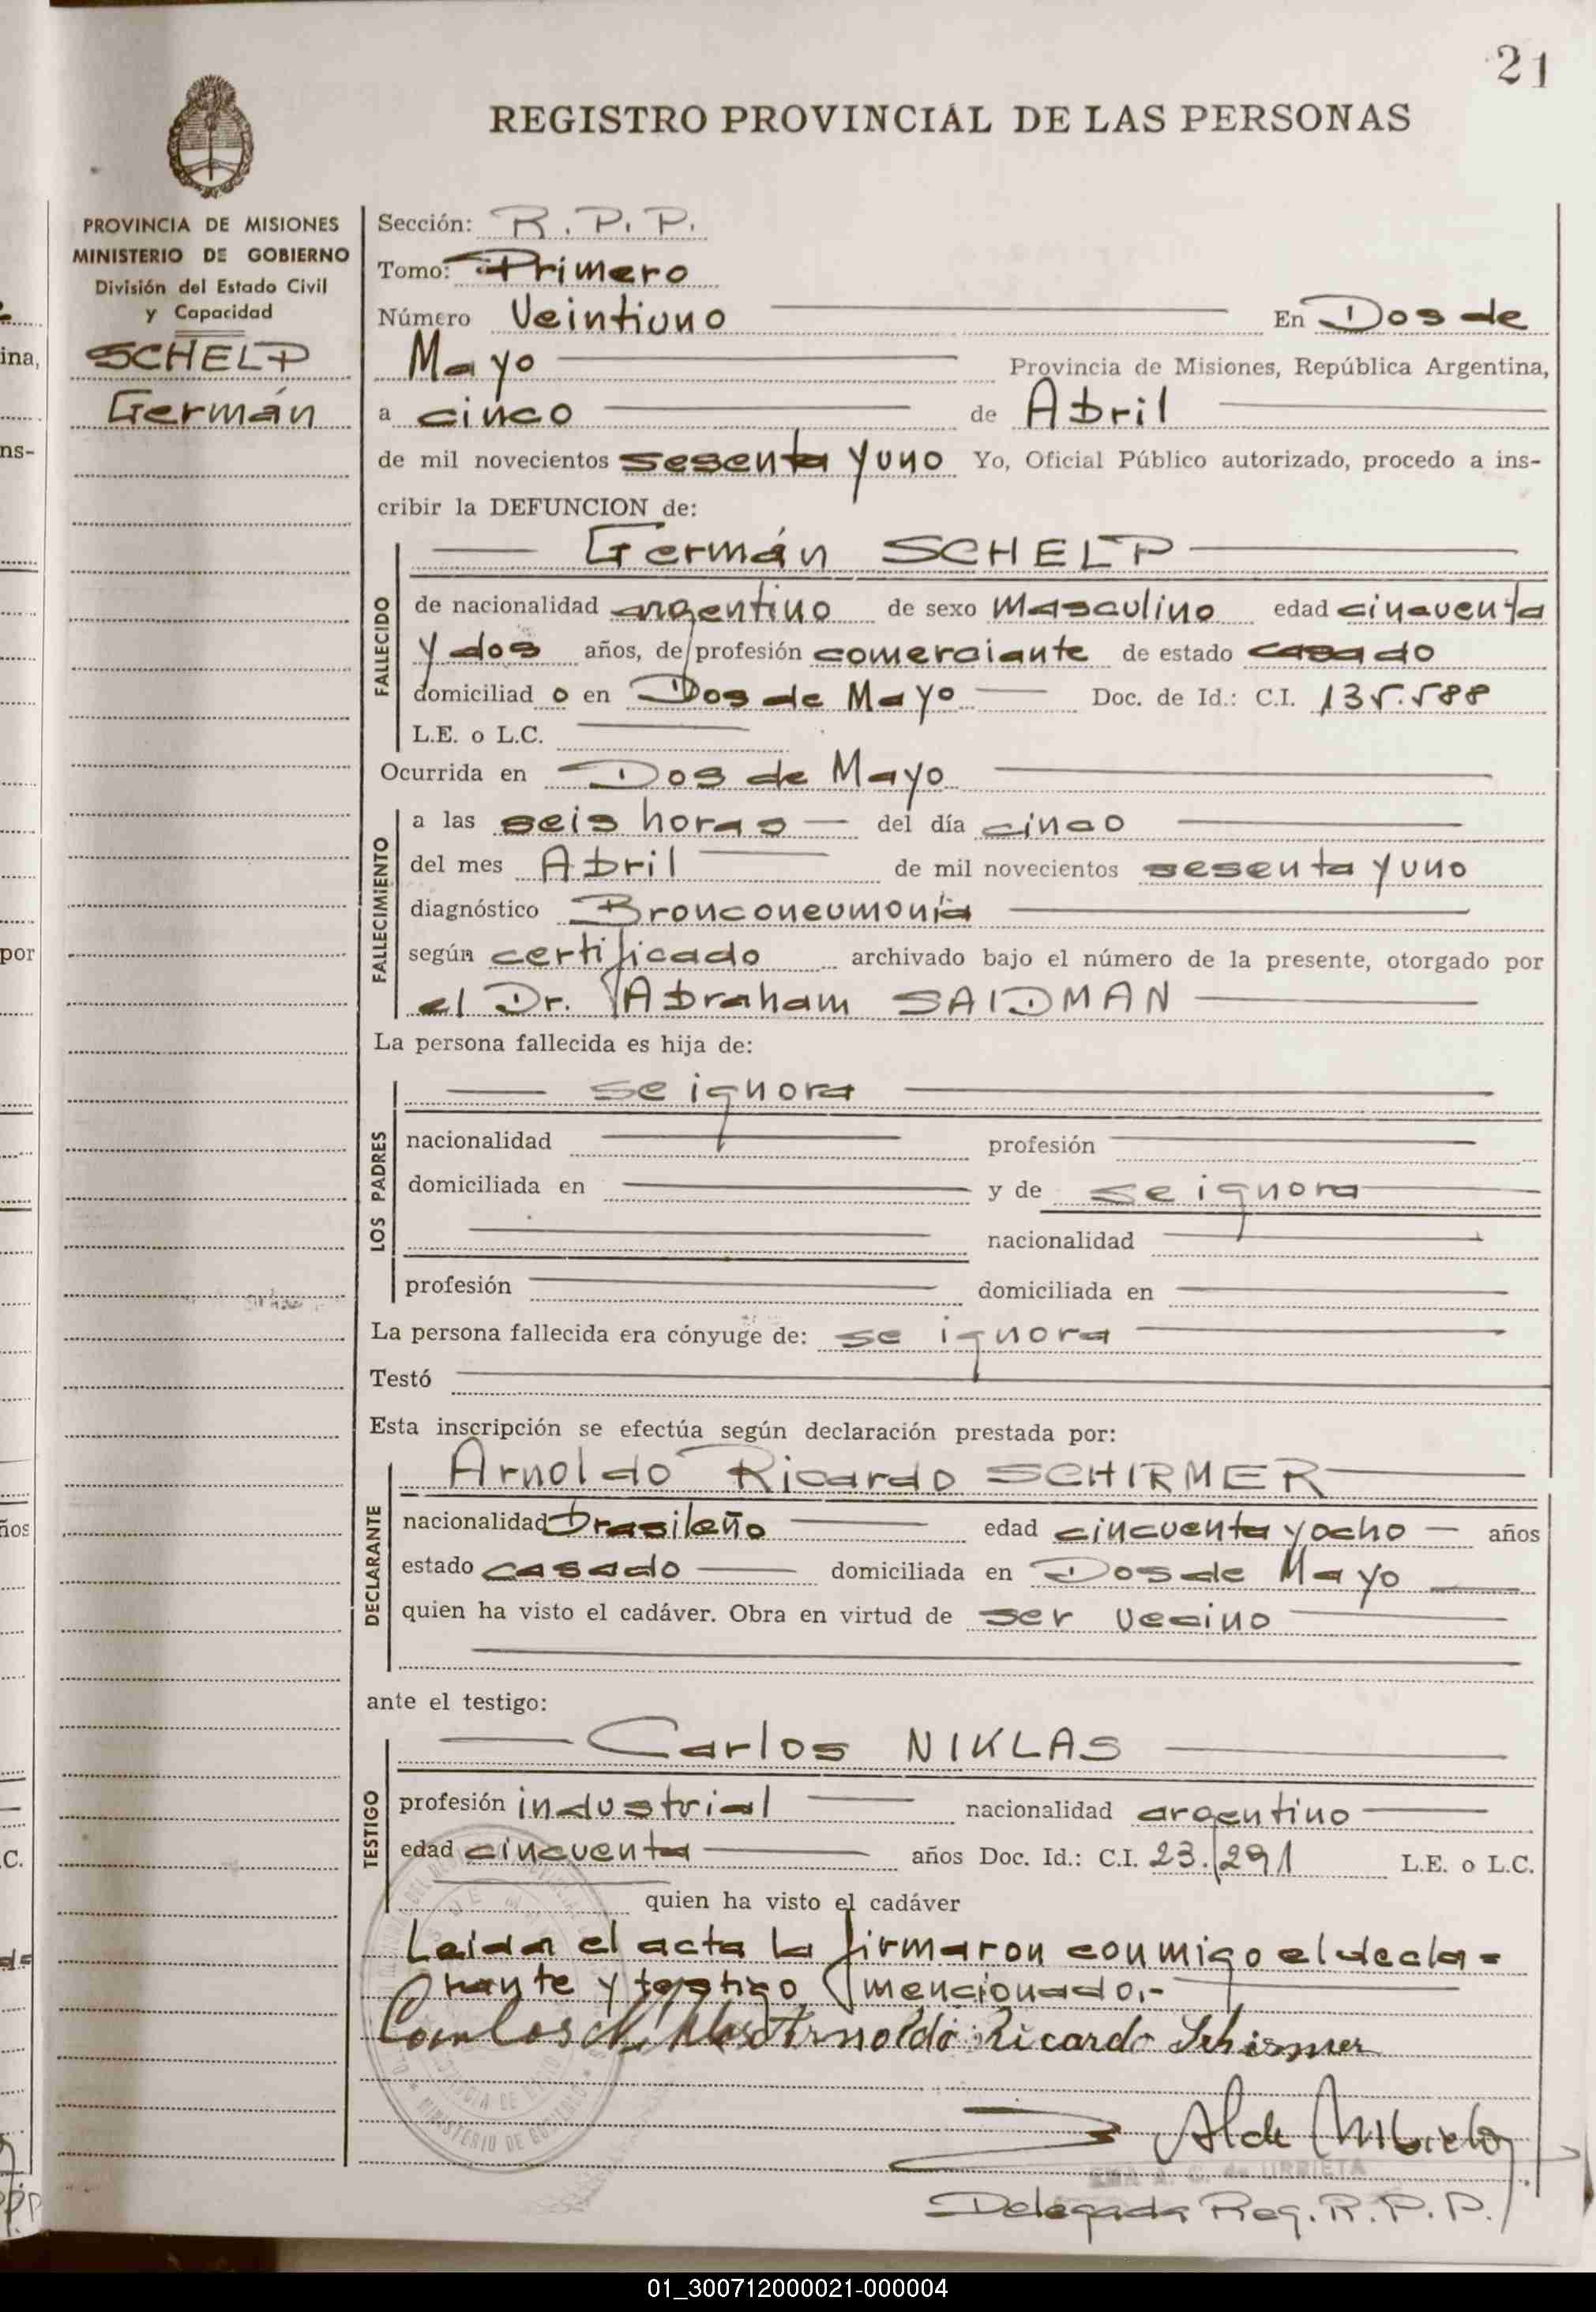 21
REGISTRO PROVINCIAL DE LAS PERSONAS
PROVINCIA DE MISIONES
MINISTERIO DE GOBIERNO
División del Estado Civil
y Capacidad
SCHELP
Germán
Sección: R. P. P.
Tomo: Primero
Número Veintiuno En Dos de
Mayo Provincia de Misiones, República Argentina,
a cinco de Abril
de mil novecientos sesenta y uno Yo, Oficial Público autorizado, procedo a ins-
cribir la DEFUNCION de:
FALLECIDO
Germán SCHELP
de nacionalidad argentino de sexo Masculino edad cincuenta
y dos años, de profesión comerciante de estado casado
domiciliad o en Dos de Mayo Doc. de Id.: C.I. 135.588
L.E. o L.C.
Ocurrida en Dos de Mayo
FALLECIMIENTO
a las seis horas del día cinco
del mes Abril de mil novecientos sesenta y uno
diagnóstico Bronconeumonía
según certificado archivado bajo el número de la presente, otorgado por
el Dr. Abraham SAIDMAN
La persona fallecida es hija de:
LOS PADRES
se ignora
nacionalidad profesión
domiciliada en y de se ignora
nacionalidad
profesión domiciliada en
La persona fallecida era cónyuge de: se ignora
Testó
Esta inscripción se efectúa según declaración prestada por:
DECLARANTE
Arnoldo Ricardo SCHIRMER
nacionalidad brasileño edad cincuenta y ocho años
estado casado domiciliada en Dos de Mayo
quien ha visto el cadáver. Obra en virtud de ser vecino
ante el testigo:
TESTIGO
Carlos NIKLAS
profesión industrial nacionalidad argentino
edad cincuenta años Doc. Id.: C.I. 23.291 L.E. o L.C.
quien ha visto el cadáver
Leida el acta la firmaron conmigo el decla-
rante y testigo mencionado.-
Carlos Niklas Arnoldo Ricardo Schirmer
MINISTERIO DE GOBIERNO
de URRIETA
Delegada Reg. R. P. P.
01_300712000021-000004